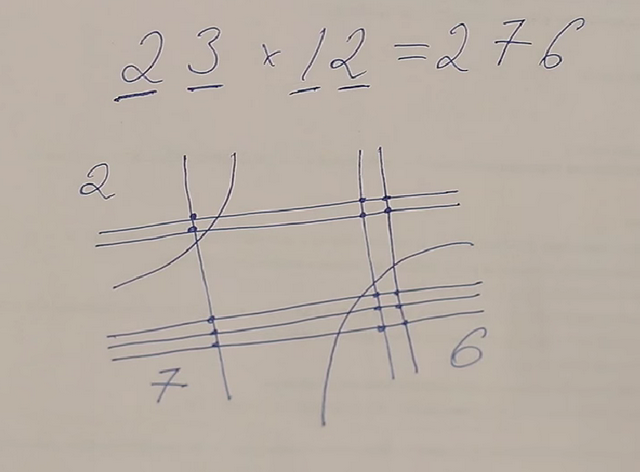 23 × 12 = 276
2
7
6